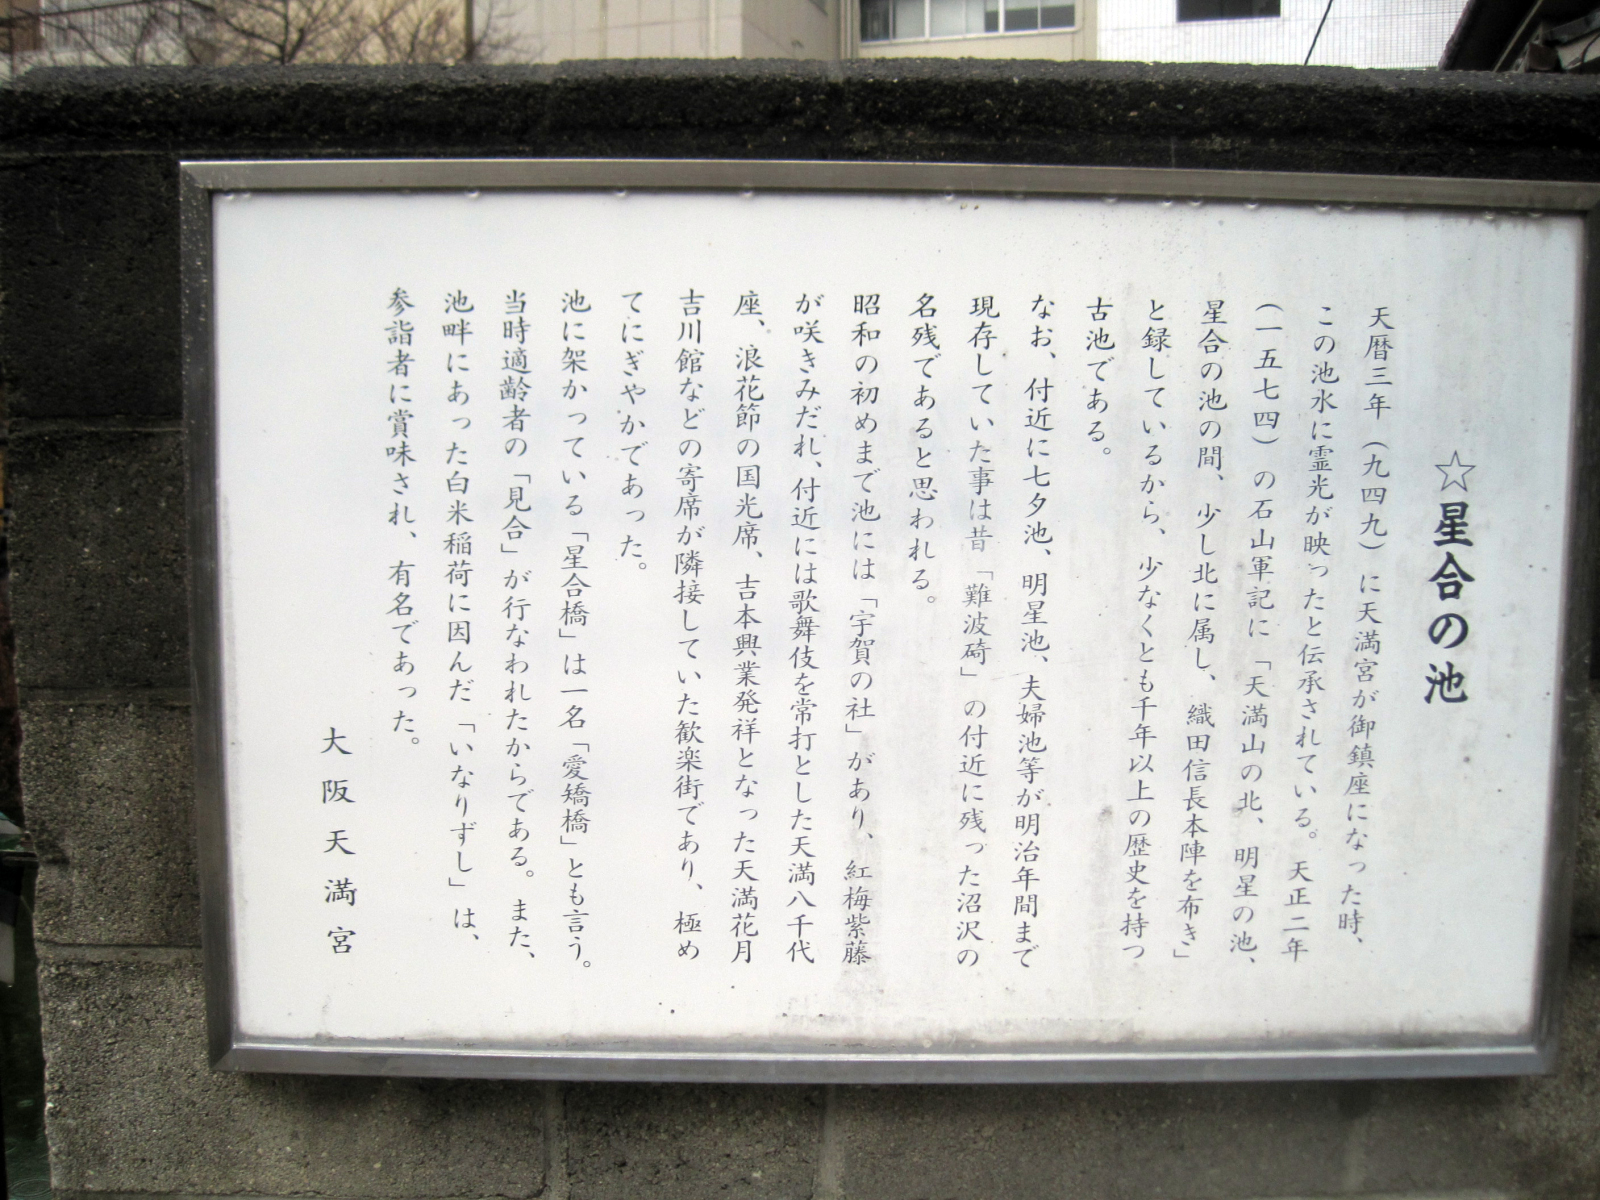 ☆星合の池
天暦三年(九四九)に天満宮が御鎮座になった時、
この池水に霊光が映ったと伝承されている。天正二年
(一五七四)の石山軍記に「天満山の北、明星の池、
星合の池の間、少し北に属し、織田信長本陣を布き」
と録しているから、少なくとも千年以上の歴史を持つ
古池である。
なお、付近に七夕池、明星池、夫婦池等が明治年間まで
現存していた事は昔「難波碕」の付近に残った沼沢の
名残であると思われる。
昭和の初めまで池には「宇賀の社」があり、紅梅紫藤
が咲きみだれ、付近には歌舞伎を常打とした天満八千代
座、浪花節の国光席、吉本興業発祥となった天満花月
吉川館などの寄席が隣接していた歓楽街であり、極め
てにぎやかであった。
池に架かっている「星合橋」は一名「愛嬌橋」とも言う。
当時適齢者の「見合」が行なわれたからである。また、
池畔にあった白米稲荷に因んだ「いなりずし」は、
参詣者に賞味され、有名であった。
大阪天満宮